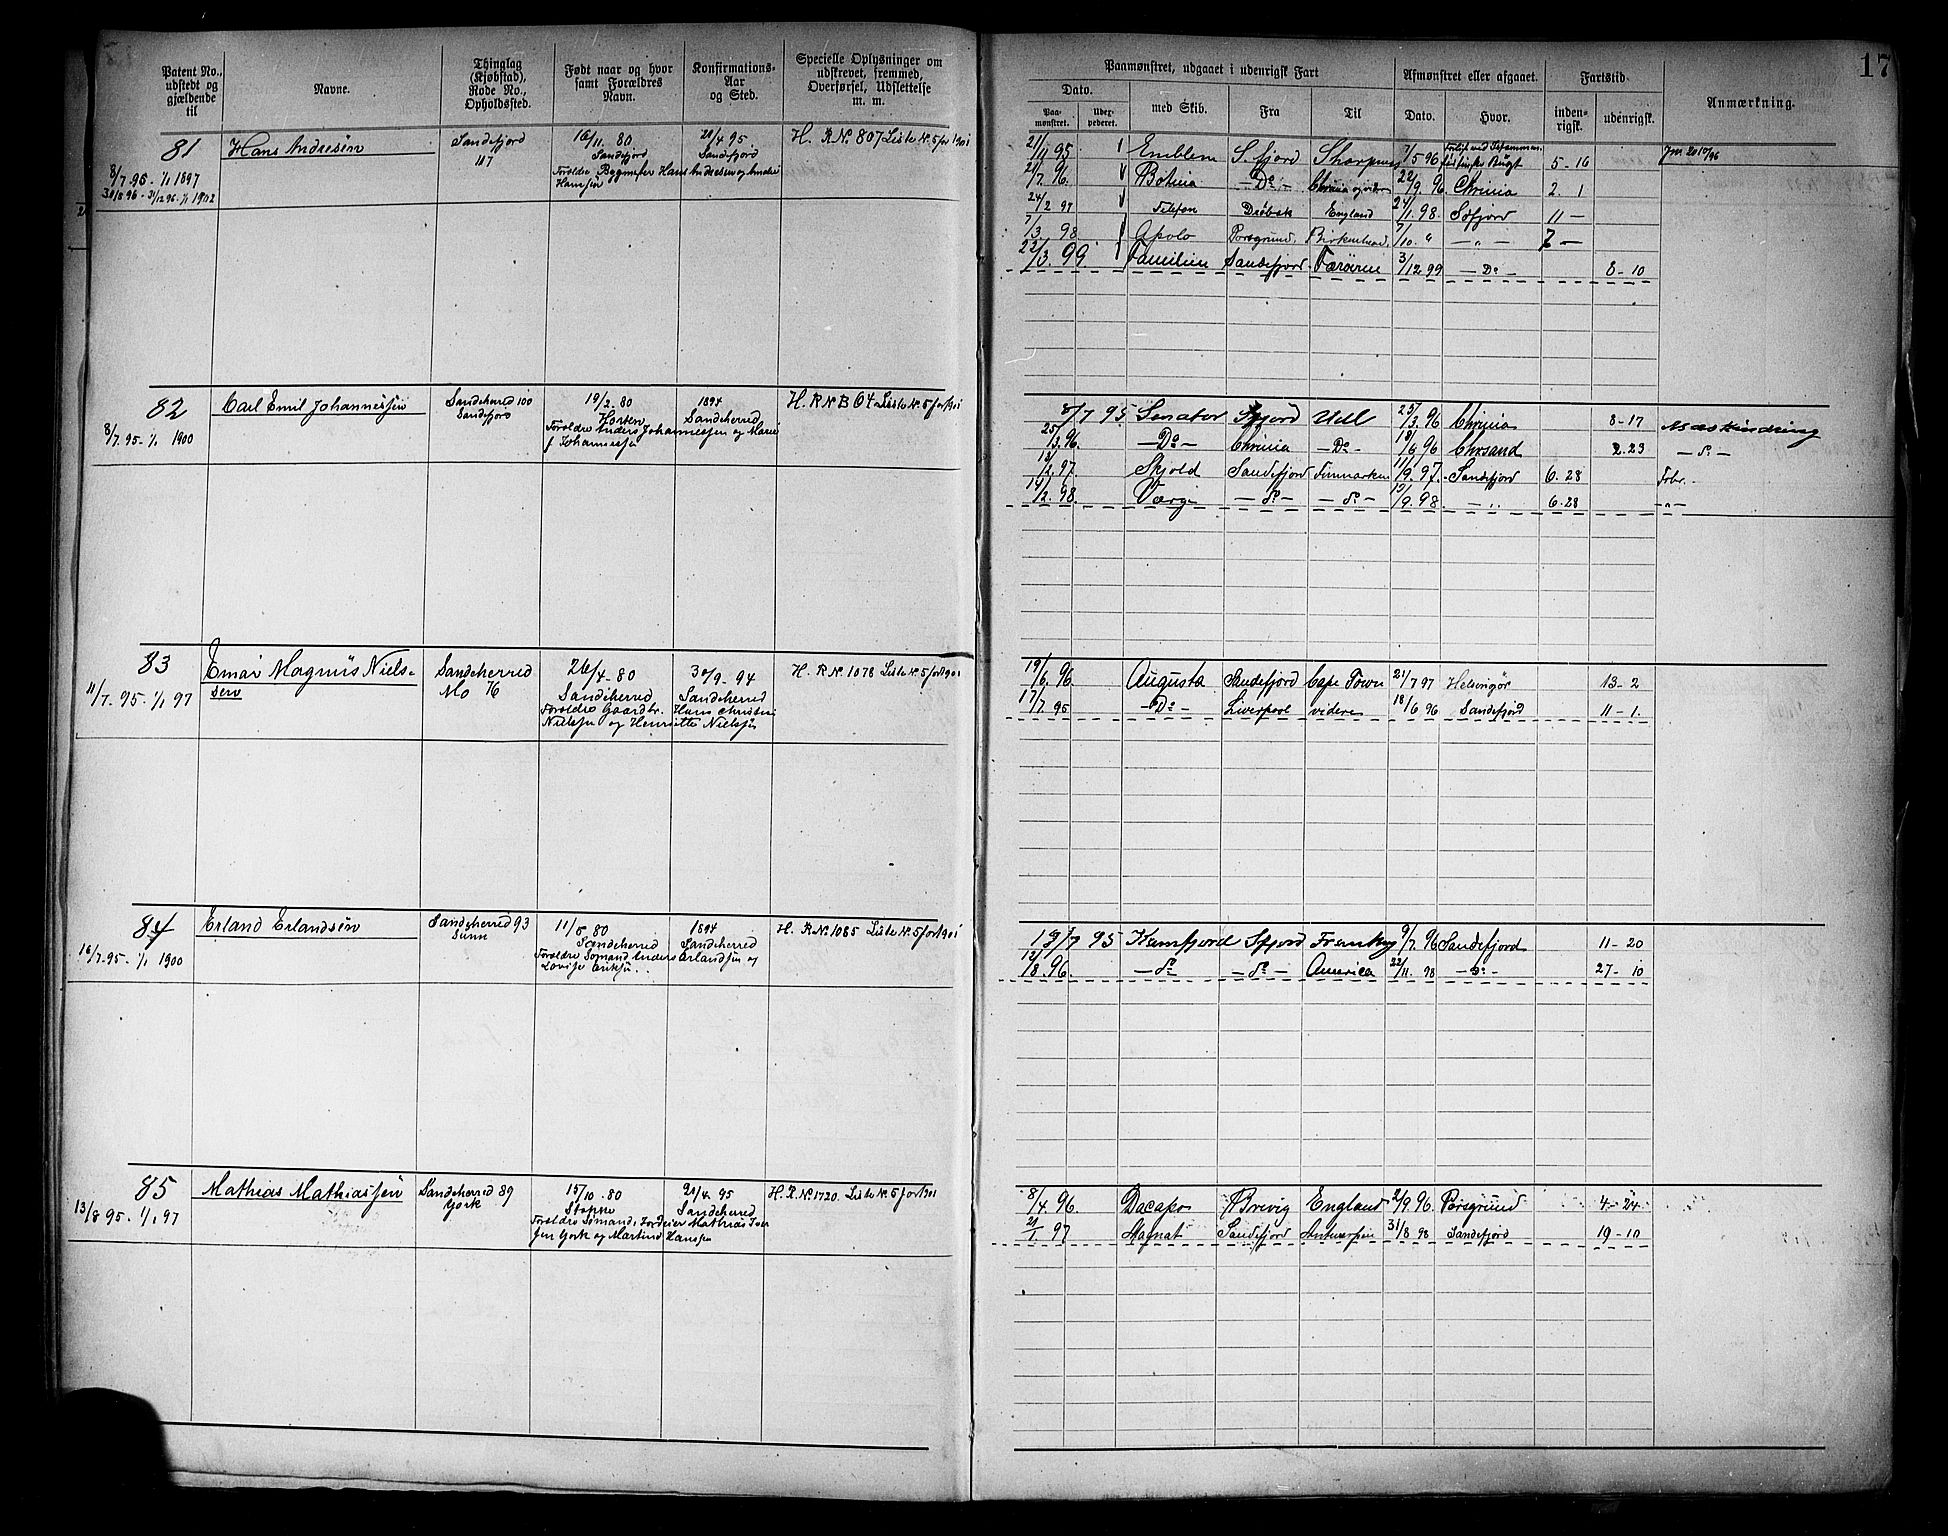 Patent No.,
udstedt og
gjældende
til
Navne.
Thinglag
(Kjøbstad),
Rode No.,
Opholdssted.
Født naar og hvor
samt Forældres
Navn.
Konfirmations-
Aar
og Sted.
Specielle Oplysninger om
udskrevet, fremmed,
Overførsel, Udslettelse
m. m.
81
8/7. 96 - 1/1 1897
Hans Andresen
Sandefjord
117
16/11. 80
Sandefjord
Forældre Bygmester Hans Andresen og Andrea
Hansen
21/4 95
Sandefjord
H. R No 807 Liste No 5 for 1901
82
8/7. 95 - 1/1 1900
Carl Emil Johannessen
Sandeherred 100
Sandefjord
19/2. 80
Horten
Forældre Anders Johannessen og Marie
Johannessen
1894
Sandeherred
H. R No B 64 Liste No 5 for 1901
83
11/7. 95 - 1/1 97
Einar Magnus Niels-
sen
Sandeherred
Mo 76
26/4 - 80
Sandeherred
Forældre Gaardbr. Hans Christian
Nielsen og Henriette Nielsen
30/9 - 94
Sandeherred
H. R No 1078 Liste No 5 for 1901
84
16/7. 95 - 1/1 1900
Erland Erlandsen
Sandeherred 93
Sunn
11/5 80
Sandeherred
Forældre Sømand Anders Erlandsen og
Lovise
1894
Sandeherred
H. R No 1085 Liste No 5 for 1901
85
13/8 95 - 1/1 97
Mathias Mathiassen
Sandeherred 89
York
15/10 - 80
Stokke
21/4 95
Sandeherred
H. R No 1720. Liste No 5 for 1901
17
Paamønstret, udgaaet i udenrigsk Fart
Afmønstret eller afgaaet.
Fartstid
Anmærkning.
Dato.
Paa-
mønstret.
med Skib.
Fra
Til
Dato.
Hvor.
inden-
rigsk.
udenrigsk.
21/11 95 Emblem S.fjord Sharpness 7/5 96 5 - 16
21/7. 96 Botnia - Do - Chrinia og videre 22/9. 96 Chrinia 2. 1
24/2 97 Telefon Drøbak England 24/1. 98. Sefjord 11 -
7/3. 98 Apolo Porsgrund. Birkenhead 7/10. " - " - 7 -
22/3. 99 Familien Sandefjord Færøerne 3/12 99 - Do - 8 - 10
8/7 95 Senator Sfjord Udl 23/3. 96 Chrinia 8 - 17 Maskindreng
25/3. 96 - Do - Chrinia - Do - 18/6 96 Chrsand 2. 23 - do -
97 Skjold Sandefjord Finmarken 11/9. 97. Sandefjord 6. 28
14/2. 98. Værge - do - - do - 9. 98 - " 6. 28 - " -
19/6. 96. Augusta Sandefjord Cape Town 21/7 97 Helsingør 13 - 2
17/7. 95 - Do - Liverpool videre 18/6 96 Sandefjord 11 - 1.
19/7 95 Kamfjord Sfjord Frankrig 9/7. 96 Sandefjord 11 - 20
12/8. 96 - do - - do - America 22/11. 98 - Do - 27 - 10
8/4. 96 Dacapo Brevig England 2/9. 96 Porsgrund 4 - 24
21/1. 97 Magnat Sandefjord Antwerpen 31/8 98 Sandefjord 19 - 10